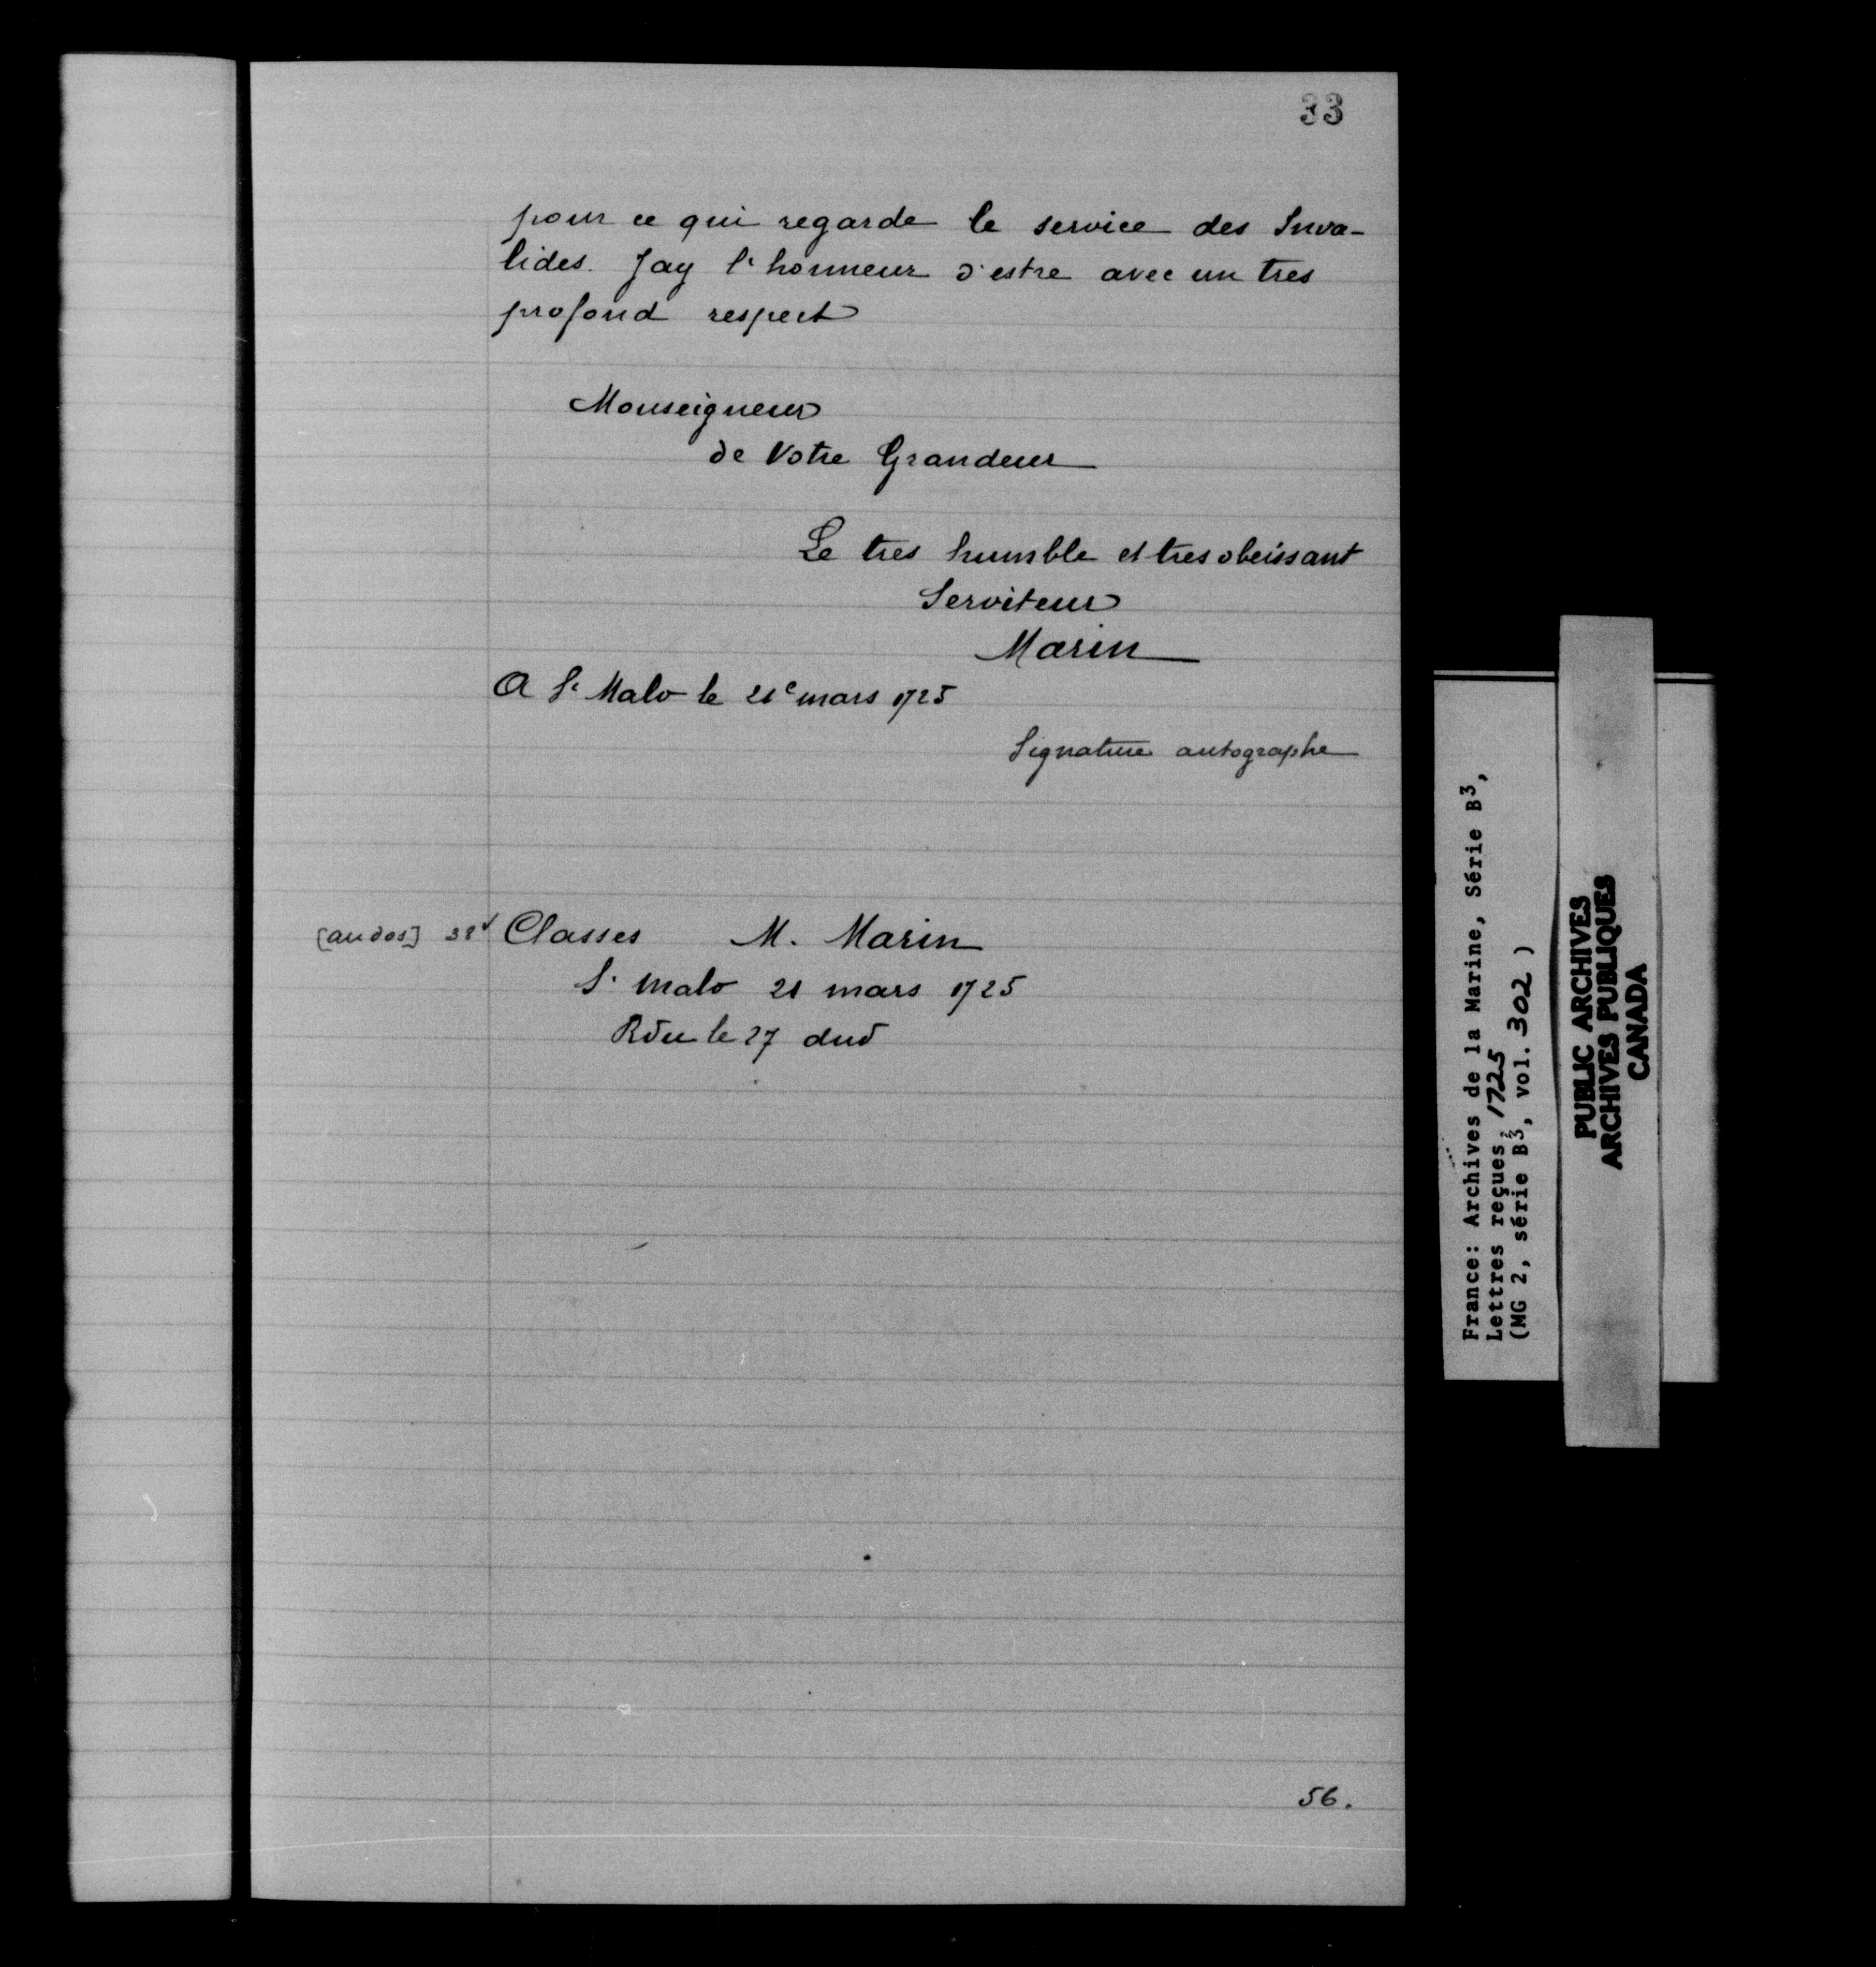 33
pour ce qui regarde le service des Inva-
lides. Jay l'honneur d'estre avec un tres
profond respect
Monseigneur
de Votre Grandeur
Le tres humble et tres obeissant
Serviteur
Marin
A St Malo le 21e mars 1725
Signature autographe
[au dos] 38v Classes M. Marin
St Malo 21 mars 1725
Rdu le 27 dud
56.
France: Archives de la Marine, Série B3,
Lettres reçues, 1725
(MG 2, série B3, vol. 302)
PUBLIC ARCHIVES
ARCHIVES PUBLIQUES
CANADA